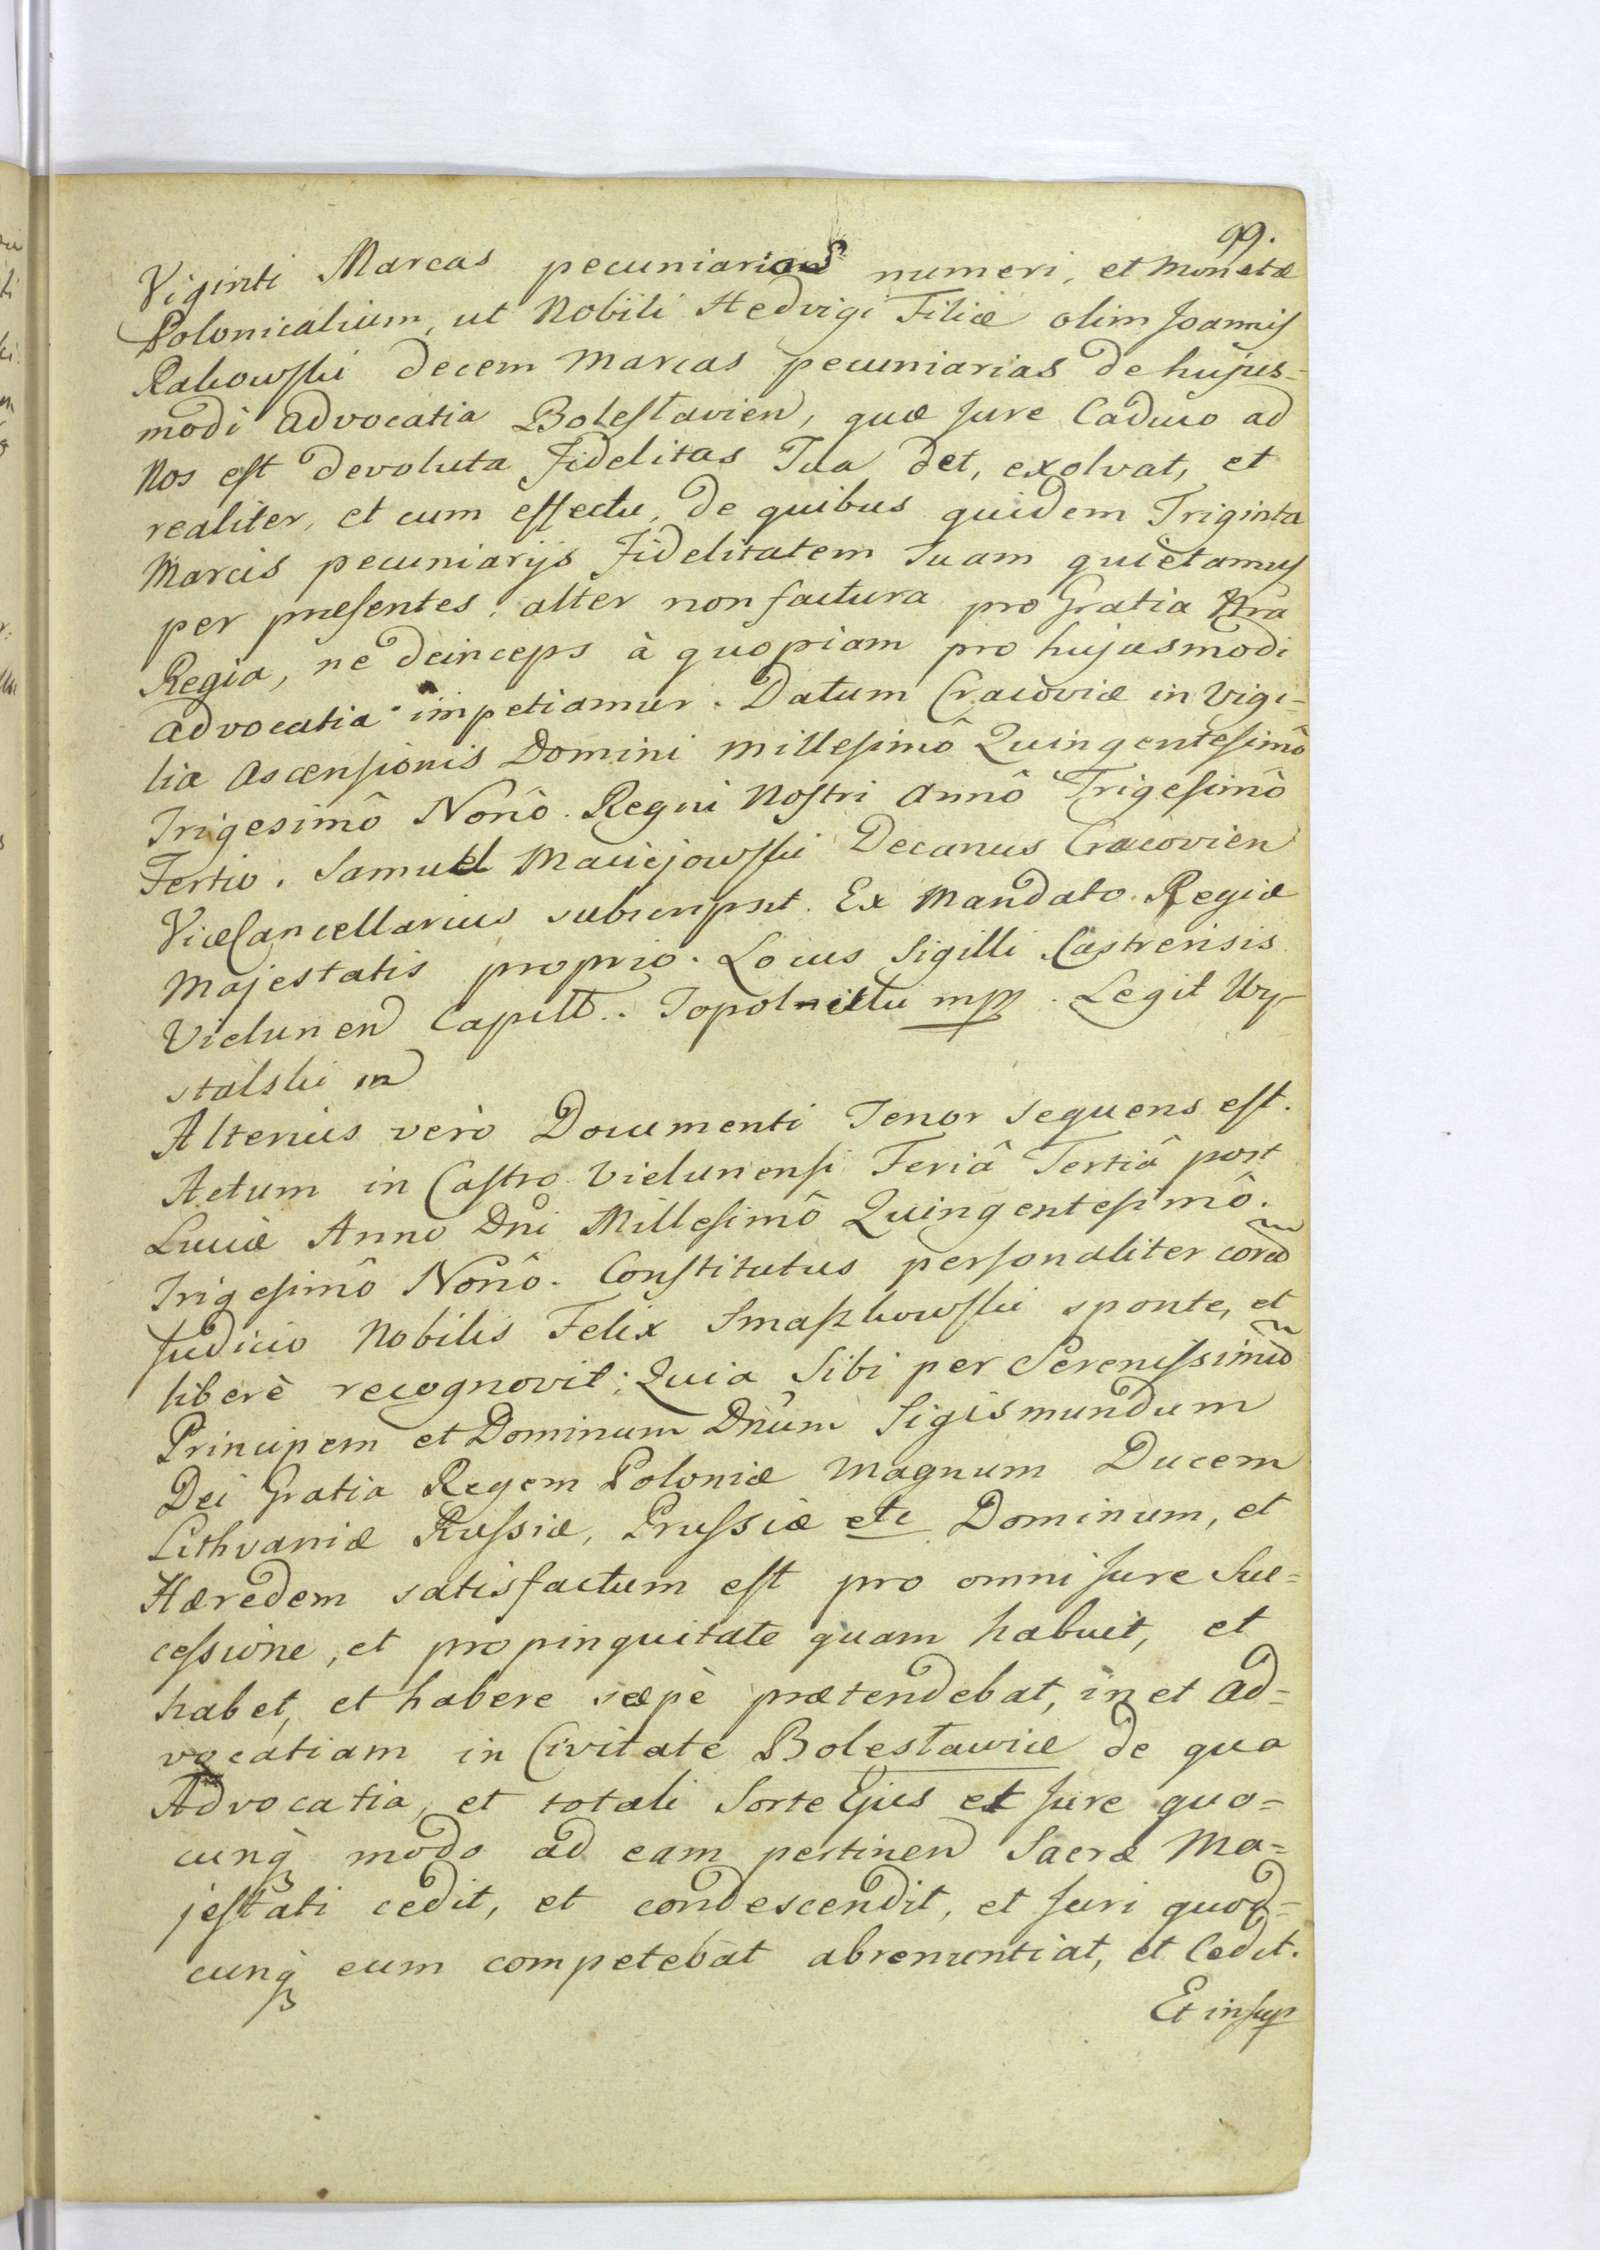 99.
Viginti Marcas pecuniarias numeri, et Monetæ
Polonicalium, ut Nobili Hedvigi Filiæ olim Joannis
Rakowski decem Marcas pecuniarias de hujus=
modi advocatia Boleslavien, quæ jure Caduco ad
Nos est devoluta Fidelitas Tua det, exolvat, et
realiter, et cum effectu, de quibus quidem Triginta
Marcis pecuniarijs Fidelitatem Tuam quietamus
per præsentes, alter non factura pro Gratia Nrã
Regia, ne deinceps à quopiam pro hujusmodi
advocatia impetiamur. Datum Cracoviæ in Vigi=
lia Ascensionis Domini Millesimô Quingentesimô
Trigesimô Nonô. Regni Nostri Annô Trigesimô
Tertio. Samuel Maciejowski Decanus Cracovien
ViceCancellarius subscripsit. Ex Mandato Regiæ
Majestatis proprio. Locus Sigilli Castrensis
Vielunen Capitt. Legit Wy-
stalski
Alterius verò Documenti Tenor sequens est.
Actum in Castro Vielunensi Feriâ Tertiâ post
Luciæ Anno Dni Millesimô Quingentesimô.
Trigesimô Nonô. Constitutus personaliter corã
Judicio Nobilis Felix Smaszkowski sponte, et
liberè recognovit; Quia Sibi per Serenissimũ
Principem et Dominum Dnum Sigismundum
Dei Gratia Regem Poloniæ Magnum Ducem
Lithvaniæ Russiæ, Prussiæ etc Dominum, et
Hæredem satisfactum est pro omni jure Suc=
cessione, et propinquitate quam habuit, et
habet, et habere sæpè prætendebat, in et ad=
vocatiam in Civitate Bolesławiæ de qua
Advocatia, et totali Sorte Ejus et jure quo=
cunq modo ad eam pertinen Sacræ Ma=
jestati cedit, et condescendit, et juri quod=
cunq eum competebat abrenuntiat, et Cedit.
Et insup